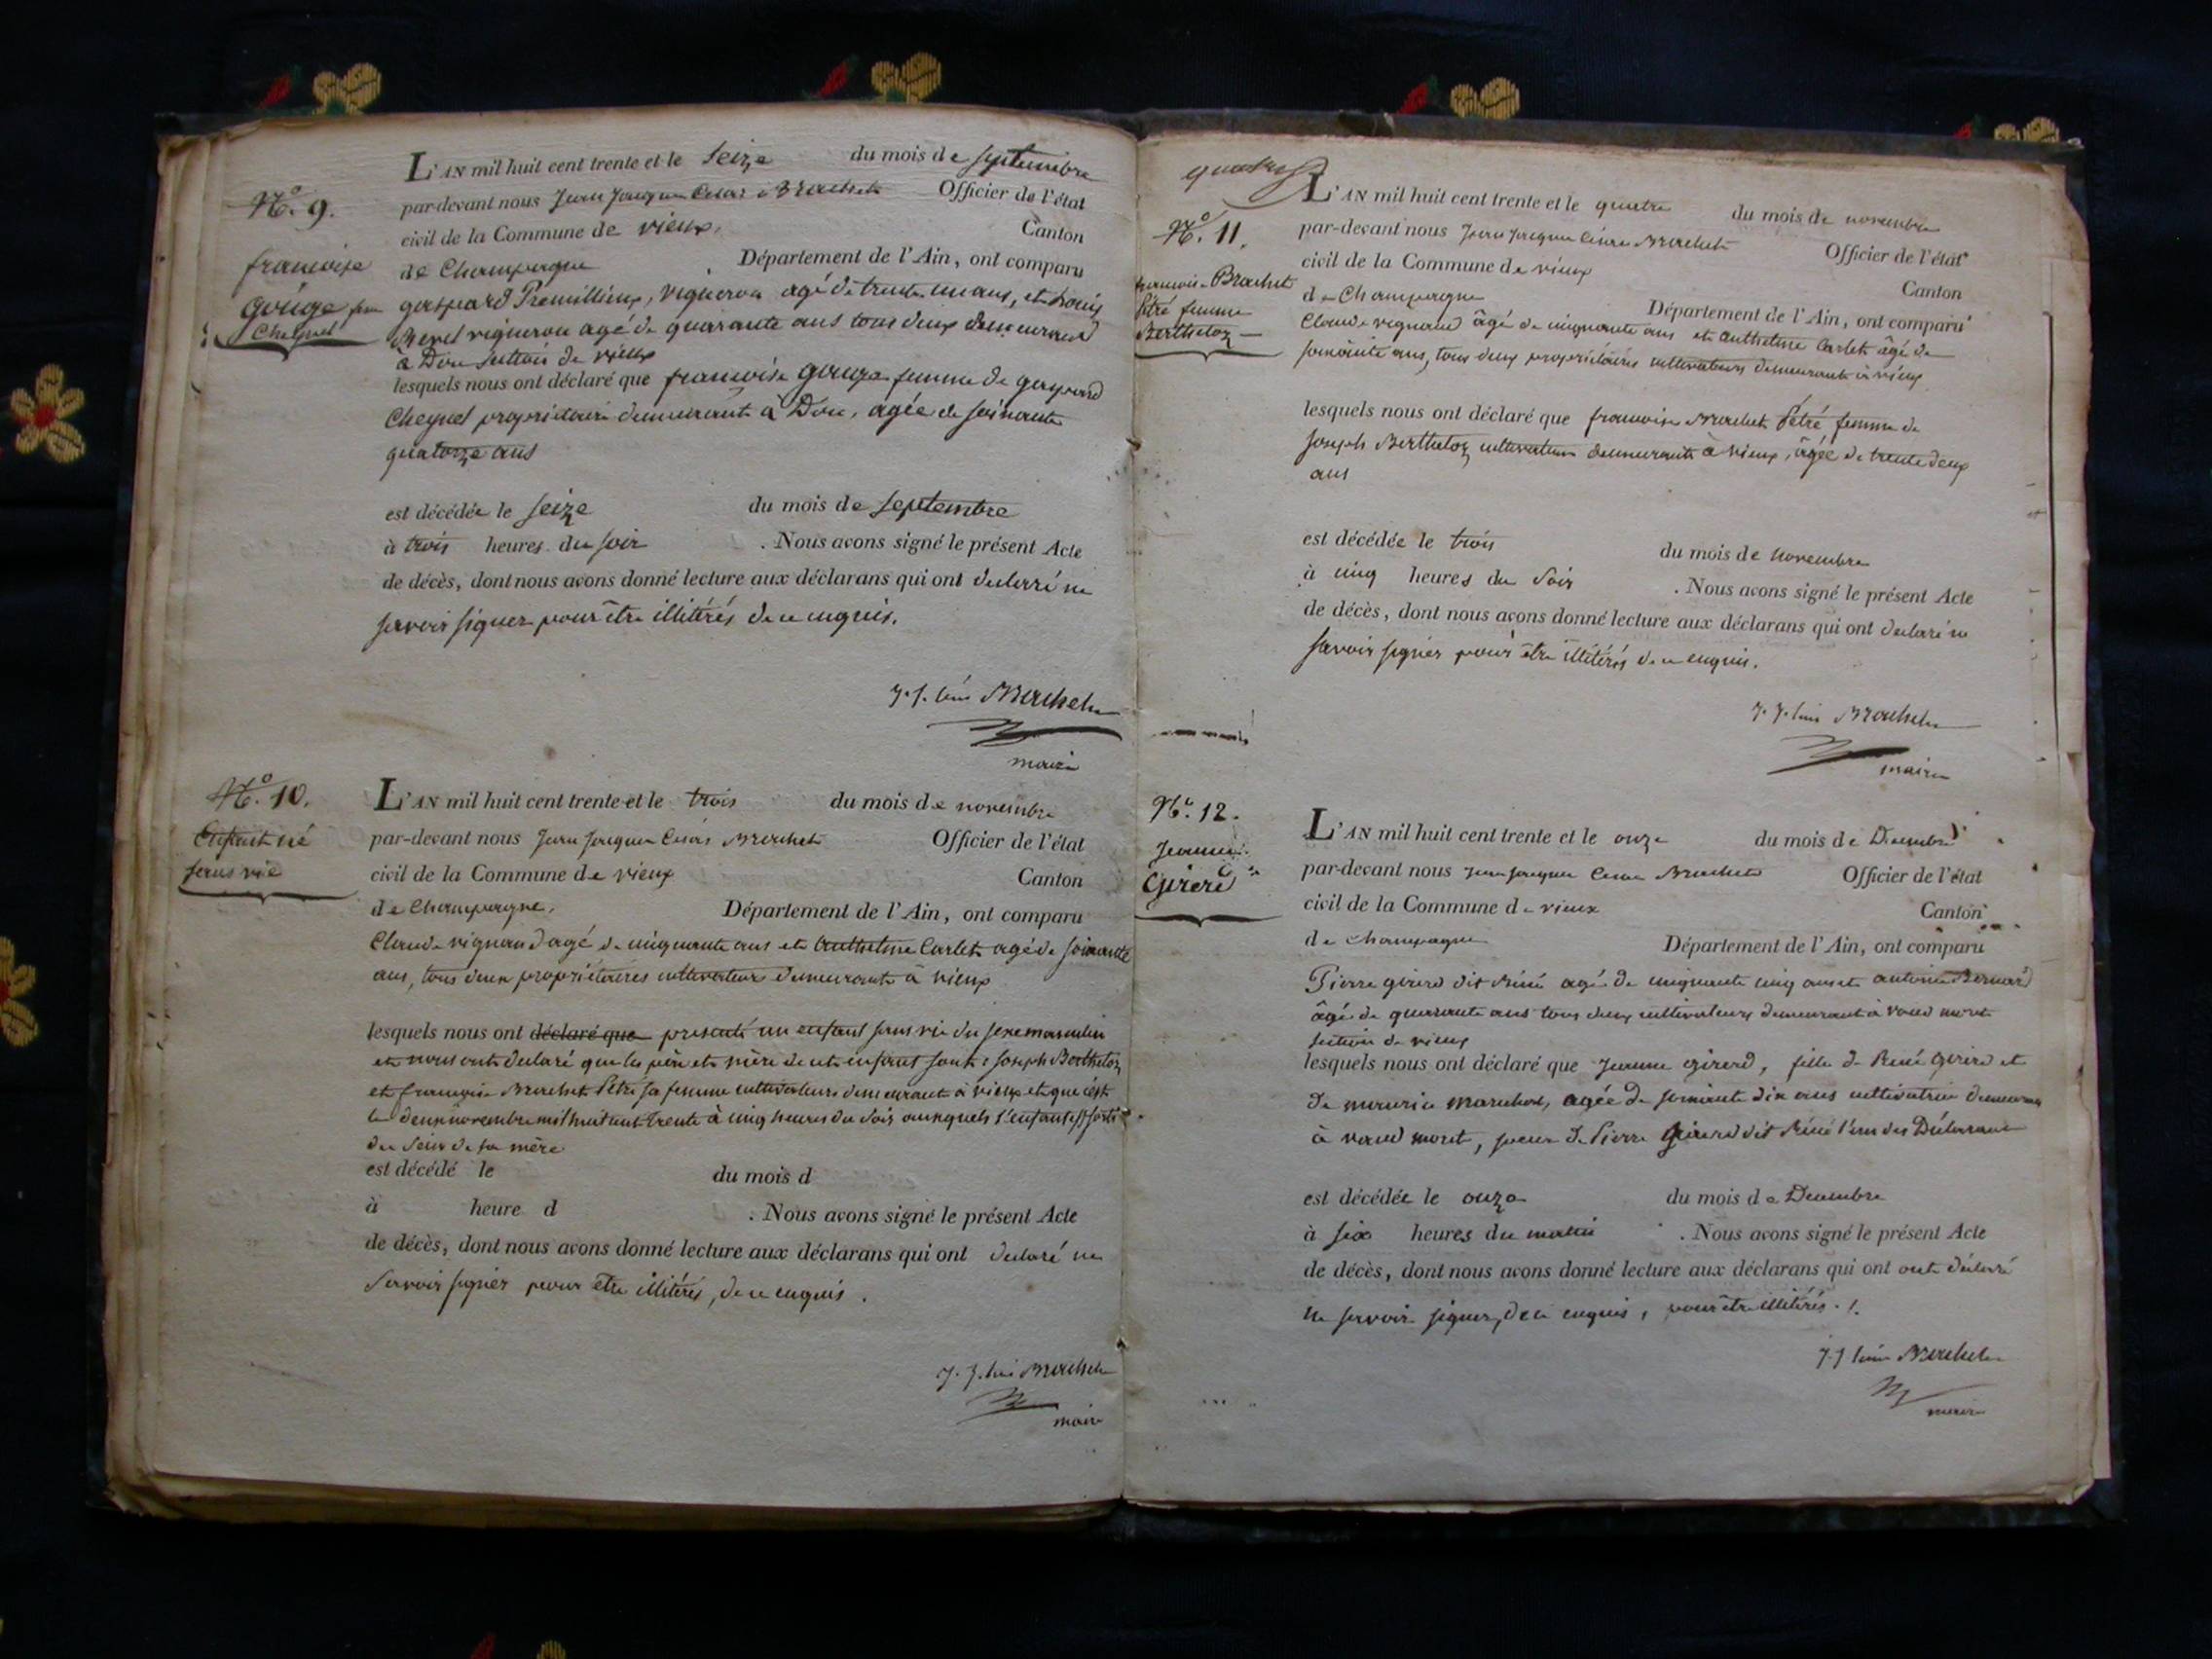 N.o 9.
françoise
gouge fem
Cheynel
L'AN mil huit cent trente et le seize du mois de septembre
par-devant nous Jean Jacques César Brachet Officier de l'état
civil de la Commune de vieux, Canton
de Champagne Département de l'Ain, ont comparu
gaspard Premillieux, vigneron agé de trente un ans, et
vigneron agé de quarante ans tous deux demeurant
à Don section de vieux
lesquels nous ont déclaré que françoise gouge femme de gaspard
Cheynel propriétaire demeurant à Don, agée de soixante
quatorze ans
est décédée le seize du mois de septembre
à trois heures du soir . Nous avons signé le présent Acte
de décès, dont nous avons donné lecture aux déclarans qui ont declaré ne
savoir signer pour être illitérés de ce enquis.
J. J. César Brachet
maire
N.o 10.
Enfant né
sans vie
L'AN mil huit cent trente et le trois du mois de novembre
par-devant nous Jean Jacques César Brachet Officier de l'état
civil de la Commune de vieux Canton
de Champagne, Département de l'Ain, ont comparu
Claude vignaud agé de cinquante ans et Anthelme Carlet agé de soixante
ans, tous deux propriétaires cultivateurs demeurant à vieux
lesquels nous ont déclaré que présenté un enfant sans vie du sexe masculin
et nous ont declaré que les père et mère de cet enfant sont : Joseph Bertheloz
et françoise Brachet Pétré sa femme cultivateurs demeurant à vieux et que c'est
le deux novembre mil huit cent trente à cinq heures du soir auxquels l'enfant est sorti
du sein de sa mère
est décédé le du mois d
à heure d . Nous avons signé le présent Acte
de décès, dont nous avons donné lecture aux déclarans qui ont declaré ne
savoir signer pour être illitérés, de ce enquis.
J. J. César Brachet
maire
N.o 11.
françoise Brachet
Pétré femme
Bertheloz
L'AN mil huit cent trente et le quatre du mois de novembre
par-devant nous Jean Jacques César Brachet Officier de l'état
civil de la Commune de vieux Canton
de Champagne Département de l'Ain, ont comparu
Claude vignaud âgé de cinquante ans et Anthelme Carlet âgé de
soixante ans, tous deux propriétaires cultivateurs demeurant à vieux
lesquels nous ont déclaré que françoise Brachet Pétré femme de
Joseph Bertheloz cultivateur demeurant à vieux, âgée de trente deux
ans
est décédée le trois du mois de novembre
à cinq heures du soir . Nous avons signé le présent Acte
de décès, dont nous avons donné lecture aux déclarans qui ont declaré ne
savoir signer pour être illitérés de ce enquis.
J. J. César Brachet
maire
N.o 12.
Jeanne
Girerd
L'AN mil huit cent trente et le onze du mois de Décembre
par-devant nous Jean Jacques César Brachet Officier de l'état
civil de la Commune de vieux Canton
de champagne Département de l'Ain, ont comparu
Pierre girerd dit Réné agé de cinquante cinq ans et antoine Bernard
âgé de quarante ans tous deux cultivateurs demeurant à vaud moret
section de vieux
lesquels nous ont déclaré que Jeanne girerd, fille de René girerd et
de maurice maréchal, agée de soixante dix ans cultivatrice demeurant
à vaud moret, soeur de Pierre girerd dit Réné l'un des Déclarans
est décédée le onze du mois de Décembre
à six heures du matin . Nous avons signé le présent Acte
de décès, dont nous avons donné lecture aux déclarans qui ont ont déclaré
ne savoir signer, de ce enquis, pour être illitérés.
J. J. César Brachet
maire